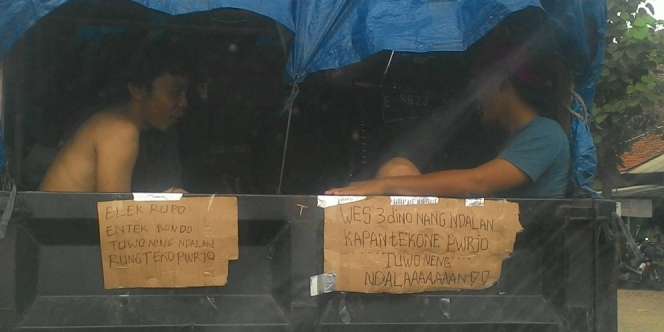 ELEK RUPO
ENTEK BONDO
TUWO NENG NDALAN
RUNG TEKO PWRJO
WES 3 dINO NANG NDALAN
KAPAN tEKONE PWRJO
TUWO NENG
NDALAAAAAAN